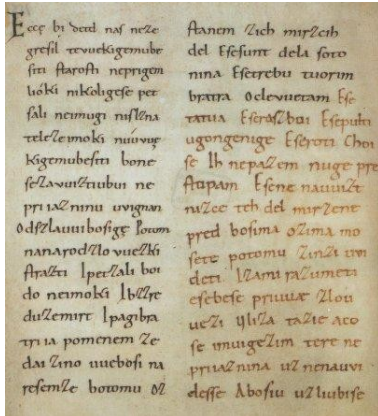 Ecce bi detd naſ neze
greſil tevuekigemube
ſiti ſtaroſti neprigem
lióki nikoligeſe pet
ſali neimugi niſlzna
teleſeimoki nuúvuę
kigemubeſiti bone
ſezavuiztiubui ne
priiazninu uvignan
Odſzlauuiboſige Potom
nanarodzlovuezki
ſtrazti Ipetzali boi
do neimoki Ibzzre
duzemirt Ipagibra
triia pomenem ze
dai zino uuebosi na
resemze botomu oz
ſtanem zich mirzcih
del Eſeſunt dela soto
nina Eſetrebu tuorim
bratra Oclevuetam Eſe
tatua Eſerazboi Eſepulti
ugongenige Eſeroti Choi
se Ih nepazem nuge pre
ſtopam Eſene nauuiſt
nizce teh del mirzene
pred boſima ozima mo
sete potomu zinzi uvi
deti Izami razumeti
eſebeſe priuuae zlou
uezi Uliza tazie aco
se imuigezim tere ne
priiaznina uznenauvi
desse Aboſiu uzliubise